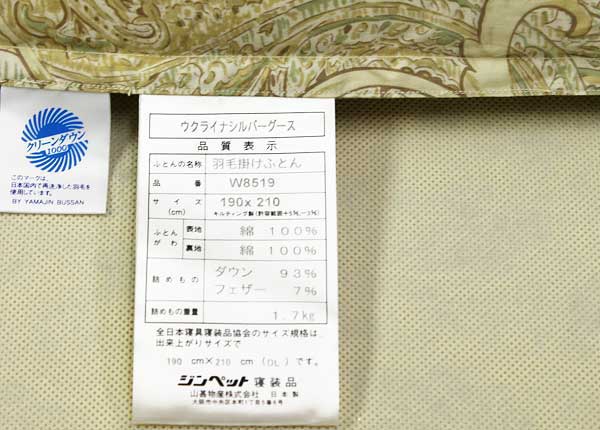 クリーンダウン
1000
このマークは、
日本国内で再洗浄した羽毛を
使用しています。
BY YAMAJIN BUSSAN
ウクライナシルバーグース
品質表示
ふとんの名称 羽毛掛けふとん
品番 W8519
サイズ(cm) 190x210
キルティング製(許容範囲+5%,-3%)
ふとんがわ 表地 綿 100%
裏地 綿 100%
詰めもの ダウン 93%
フェザー 7%
詰めもの重量 1.7kg
全日本寝具寝装品協会のサイズ規格は
出来上がりサイズで
190 cm×210 cm (DL)です。
ジンペット 寝装品
山甚物産株式会社 日本製
大阪市中央区本町1丁目5番6号